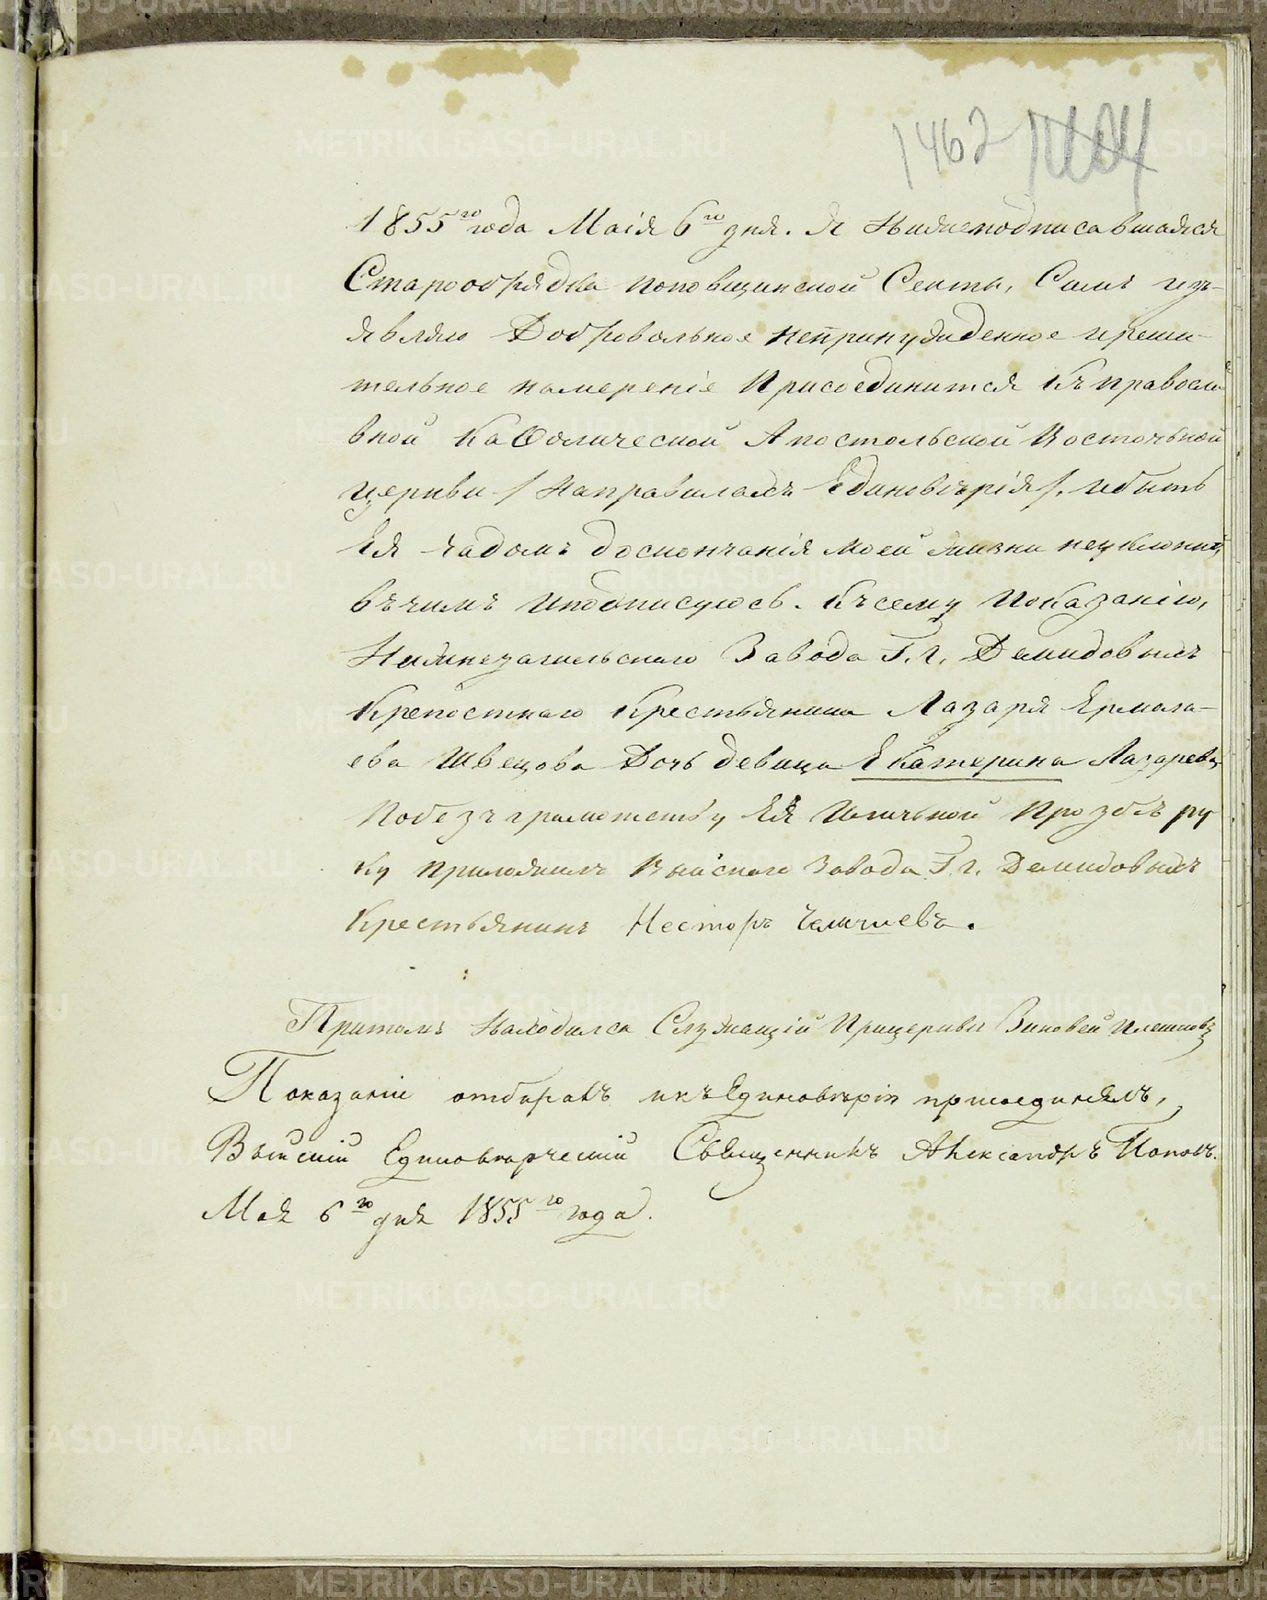 1462
1855го года Маія 6го дня. Я Нижеподписавшаяся
Старообрядка поповщинской Секты, Симъ изъ-
являю Добровольное непринужденное ирѣши-
тельное намереніе Присоединится Къ правосла
вной Каѳолической Апостольской Восточьной
церкви / Направилахъ Единовѣрія /. ибыть
Ея чадомъ доскончанія моей жизни неуклонно,
въчимъ иподписуюсь. Късему Показанію,
Нижнетагильскаго Завода Г.г. Демидовыхъ
Крепостнаго Крестьянина Лазаря Ермола-
ева Швецова Дочь девица Екатерина Лазарева
Побезъграмотству Ея Иличьной Прозбѣ ру
ку приложилъ Выйскаго Завода Г.г. Демидовыхъ
Крестьянинъ Несторъ
Притомъ Находился Служащій Прицеркви Зиновей Плешковъ
Показаніе отбиралъ икъЕдиновѣрію присоединялъ,
Выйскій Единовѣрческій Священникъ Александръ Поповъ.
Мая 6го дня 1855го года.
METRIKI.GASO-URAL.RU